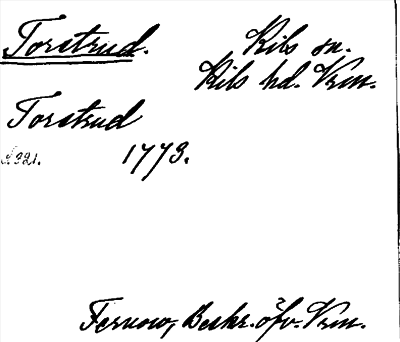 Torstrud. Kils sn.
Kils hd. Vrm.
Torstrud
S. 321. 1773.
Fernow, Beskr. öfv. Vrm.